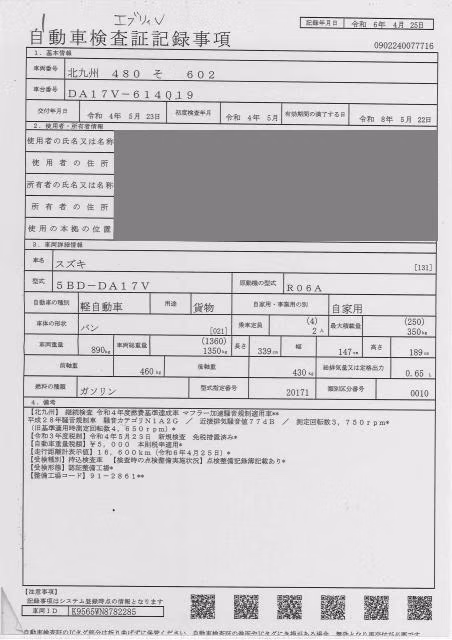 エブリィV
記録年月日 令和 6年 4月 25日
自動車検査証記録事項
0902240077716
1. 基本情報
車両番号 北九州 480 そ 602
車台番号 DA17V-614019
交付年月日 令和 4年 5月 23日 初度検査年月 令和 4年 5月 有効期間の満了する日 令和 8年 5月 22日
2. 使用者・所有者情報
使用者の氏名又は名称
使用者の住所
所有者の氏名又は名称
所有者の住所
使用の本拠の位置
3. 車両詳細情報
車名 スズキ [131]
型式 5BD-DA17V 原動機の型式 R06A
自動車の種別 軽自動車 用途 貨物 自家用・事業用の別 自家用
車体の形状 バン [021] 乗車定員 (4) 2人 最大積載量 (250) 350kg
車両重量 890kg 車両総重量 (1360) 1350kg 長さ 339cm 幅 147cm 高さ 189cm
前軸重 460kg 後軸重 430kg 総排気量又は定格出力 0.65 L
燃料の種類 ガソリン 型式指定番号 20171 類別区分番号 0010
4. 備考
【北九州】 継続検査 令和4年度燃費基準達成車 マフラー加速騒音規制適用車**
平成28年騒音規制車 騒音カテゴリN1A2G / 近接排気騒音値77dB / 測定回転数3,750rpm*
(旧基準適用時測定回転数4,650rpm)*
【令和3年度税制】令和4年5月23日 新規検査 免税措置済み*
【自動車重量税額】¥5,000 本則税率適用*
【走行距離計表示値】16,600km(令和6年4月25日)*
【受検種別】持込検査車 【検査時の点検整備実施状況】点検整備記録簿記載あり*
【受検形態】認証整備工場*
【整備工場コード】91-2861**
【注意事項】
記録事項はシステム登録時点の情報となります
車両ID K9565WN8782285